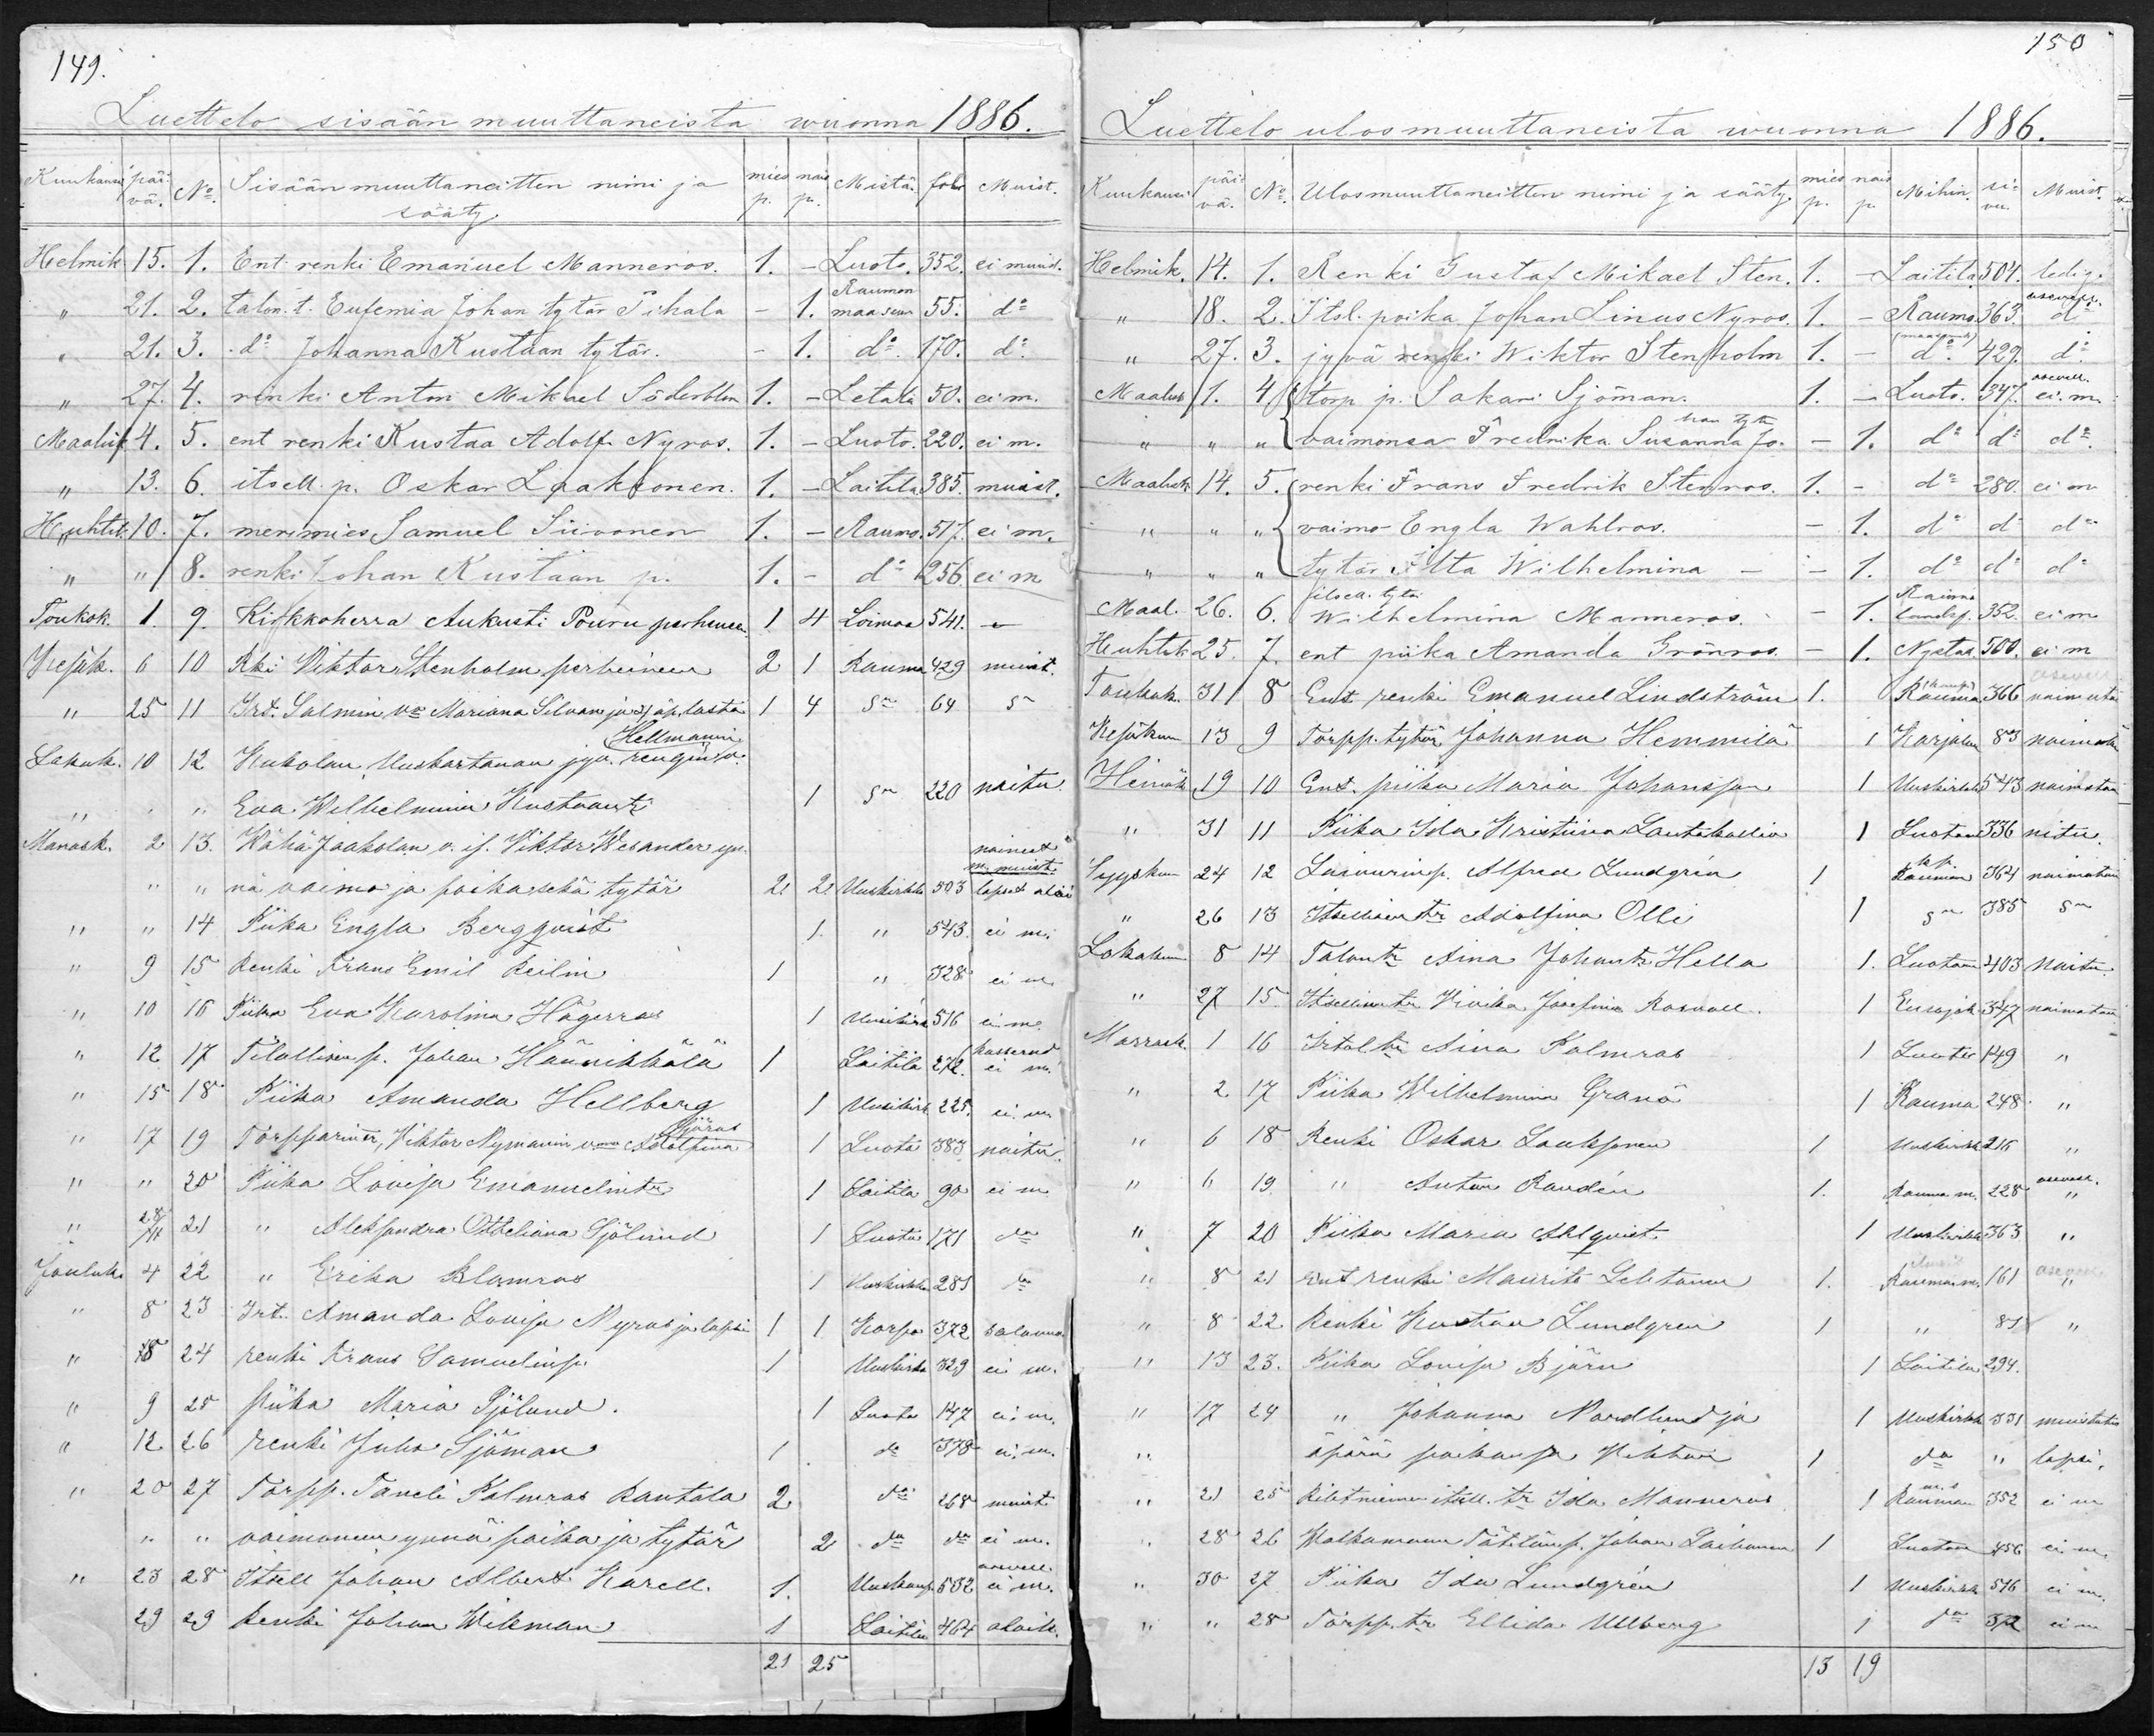 149.
Luettelo sisään muuttaneista wuonna 1886.
Kuukausi päivä. No. Sisään muuttaneitten nimi ja sääty. miesp. naisp. Mistä. folio Muist.
Helmik 15. 1. Ent. renki Emanuel Manneros. 1. - Luoto. 352. ei muist.
" 21. 2. talon. t. Eufemia Johan tytär Pihala - 1. Rauman maaseur 55. do
" 21. 3. do Johanna Kustaan tytär. - 1. do. 170. do.
" 27. 4. renki Anton Mikael Söderblom 1. - Letala 50. ei m.
Maalisk 4. 5. ent renki Kustaa Adolf Nyros. 1. - Luoto. 220. ei m.
" 13. 6. itsell. p. Oskar Laaksonen. 1. - Laitila 385. muist.
Huhtik. 10. 7. merimies Samuel Siivonen 1. - Raumo. 517. ei m.
" " 8. renki Johan Kustaan p. 1. - do 256 ei m
Toukok. 1. 9. Kirkkoherra Aukusti Pouru perheineen 1 4 Loimaa 541. -
Kesäk. 6 10 Rki Viktor Stenholm perheineen 2 1 Rauma 429 muist.
" 25 11 Irt. Salmin vo Mariana Silvan ja äp. lasta 1 4 sn 64 sn
Lokak. 10 12 Kukolan Uuskartanan jyv. rengin v. Hellmanin
" " " Eva Wilhelmina Kustaantr 1 sn 220 naitu
Marrask. 2 13. Wähä Jaakolan v. is. Viktor Vesander yn-
" " nä vaimo ja poika sekä tytär 2 2 Uuskirkko 503 naineet m. muist. lapset alai
" " 14 Piika Engla Bergqvist 1. " 543. ei m.
" 9 15 Renki Frans Emil Reilin 1 " 328 ei m.
" 10 16 Piika Eva Karolina Hägerros 1 Uusikirk 516 ei m.
" 12 17 Tilallisen p. Johan Hännikkälä 1 Laitila 272. ei m.
" 15 18 Piika Amanda Hellberg 1 Uusikirk. 225. ei m
" 17 19 Torpparin, Viktor Nymanin vmo Adolfina Sjöros 1 Luoto 383 naitu.
" " 20 Piika Lovisa Emanuelintr 1 Laitila 90 ei m
" 28/11 21 " Aleksandra Otteliana Sjölund 1 Luoto 171 do
Jouluk. 4 22 " Erika Blomros 1 Uuskirkko 281 do
" 8 23 Irt. Amanda Lovisa Nyros ja lapsi 1 1 Korpo 372
" 8 24 renki Frans Samuelinp. 1 Uuskirko 329 ei m.
" 9 25 piika Maria Sjölund. 1 Luoto 147 ei m.
" 12 26 renki Juho Sjöman 1 do 378 ei m.
" 20 27 Torpp. Taneli Palmros Rantala 2 do 268 muist
" " vaimoneen ynnä poika ja tytär 2 do do ei m.
" 23 28 Itsell Johan Albert Karell. 1. 532 asevell. ei m.
29 29 Renki Johan Wikman 1 Laitila 464 alaik.
21 25
150
Luettelo ulosmuuttaneista wuonna 1886.
Kuukausi. päivä. No. Ulosmuuttaneitten nimi ja sääty. miesp. naisp. Mihin. sivu. Muist.
Helmik. 14. 1. Renki Gustaf Mikael Sten. 1. - Laitila 504. ledig.
" 18. 2. Itsl. poika Johan Linus Nyros. 1. - Raumo. 363. asevell. do
" 27. 3. jyvä renki Wiktor Stenholm 1. - (maaseurak) do. 429. do.
Maalisk 1. 4 torp p. Sakari Sjöman. 1. - Luoto. 347. asevell. ei. m.
" " " vaimonsa Fredrika Susanna Johan tytr - 1. do do do.
Maalisk 14. 5. renki Frans Fredrik Stenros. 1. - do 280. ei m
" " " vaimo Engla Wahlros. - 1. do do do
" " " tytär Ilta Wilhelmina - - 1. do do do
Maal. 26. 6. itsell. tytär Wilhelmina Manneros. - 1. Raumo landsf. 352. ei m
Huhtik 25. 7. ent piika Amanda Grönros. - 1. Nystad. 500. ei m
Toukok. 31 8 Ent renki Emanuel Lindström 1. Rauma 366 asevell naimatoin
Kesäkuu 13 9 Torpp. tytär Johanna Hemmilä 1 Karjalan 83 naimaton
Heinäk 19 10 Ent. piika Maria Johansson 1 Uuskirkko 543 naimaton
" 31 11 Piika Ida Kristiina Lautakallio 1 Luotoon 336 naitu.
Syyskuu 24 12 Alfred Lundgrén 1 Rauman 364 naimaton
" 26 13 Itsellisen tr Adolfina Olli 1 sn 385 sn
Lokakuu 8 14 Talontr Aina Johantr Hella 1. Luotoon 403 Naitu
" 27 15. Itsellisen tr Viivika Josefina Rosvall. 1 Eurajok 347 naimaton
Marrask. 1 16 Irtol tr Aina Palmros 1 Luoto 149 "
" 2 17 Piika Wilhelmina Granö 1 Rauma 248 "
" 6 18 Renki Oskar Laaksonen 1 Uuskirkk 216 "
" 6 19 " Anton Randén 1. Rauma m. 228 asevell. "
" 7 20 Piika Maria Ahlqvist 1 Uuskirkk 363 "
" 8 21 Ent renki Maurits Lehtonen 1. Rauma m. 161 asevell "
" 8 22 Renki Kustaa Lundgren 1 " 81 "
" 13 23. Piika Lovisa Björn 1 Laitila 294.
" 17 24 " Johanna Nordlund ja 1 Uuskirkk 331
" äpärä poikansa Viktor 1 do " lapsi.
" 21 25 itsell. tr Ida Manneros 1 Rauman m.s 352 ei m
" 28 26 Johan 1 Luotoon 456 ei m.
" 30 27 Piika Ida Lundgrén 1 Uuskirkk 516 ei m.
" " 28 Torpp. tr Ellida Ullberg 1 do 372 ei m
13 19